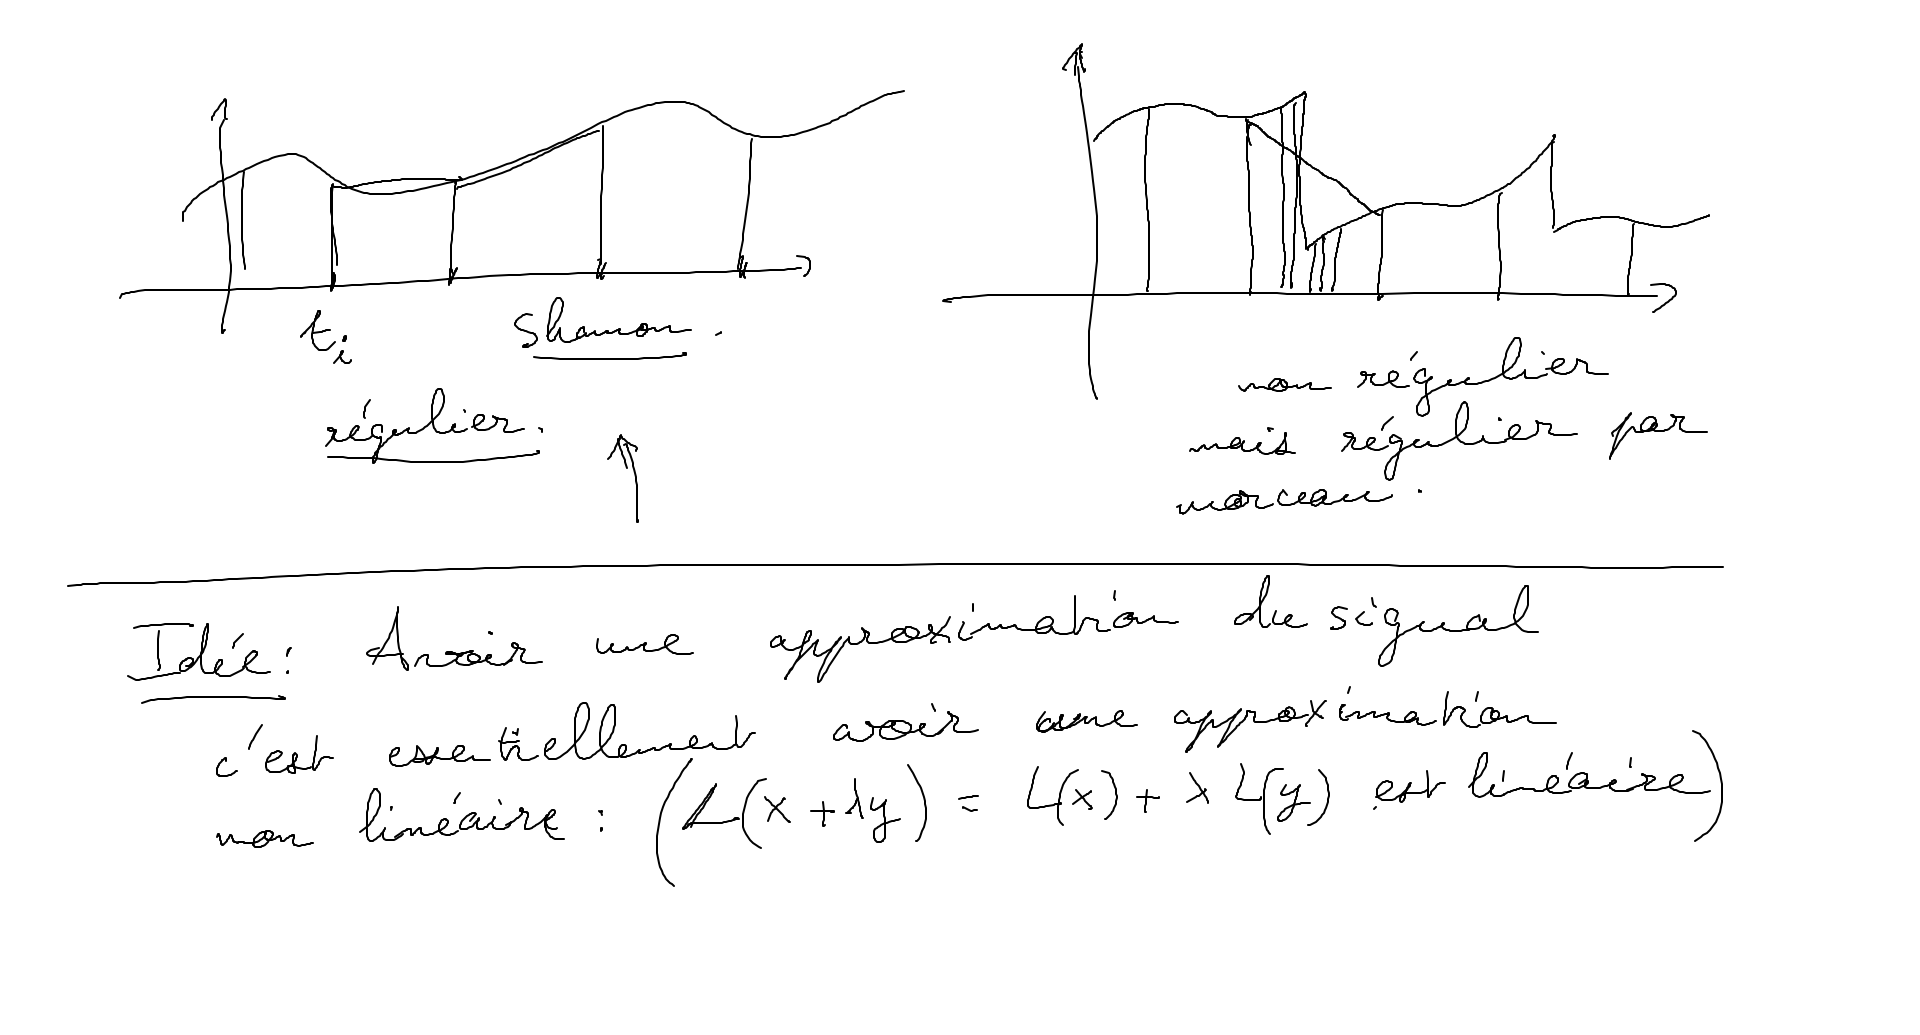 t_i
Shannon.
régulier.
non régulier
mais régulier par
morceau.
Idée: Avoir une approximation du signal
c'est essentiellement avoir une approximation
non linéaire : (L(x + λy) = L(x) + λ L(y) est linéaire)